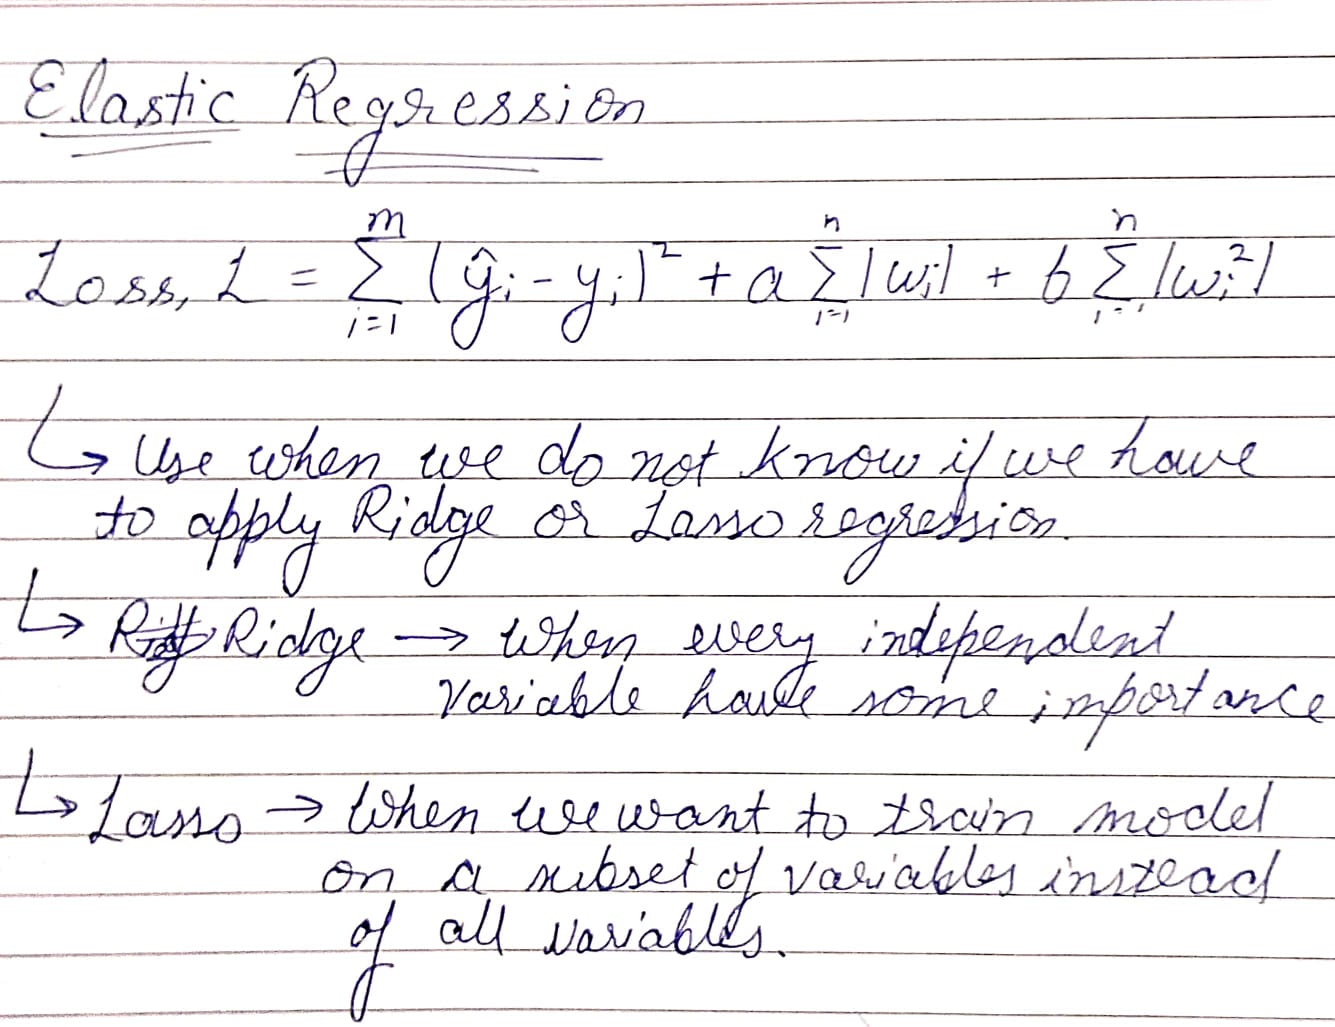 Elastic Regression
Loss, L = m∑i=1 (ŷi - yi)² + a n∑i=1 |wi| + b n∑i=1 |wi²|
↳ Use when we do not know if we have
to apply Ridge or Lasso regression.
↳ Ridge → When every independent
variable have some importance
↳ Lasso → When we want to train model
on a subset of variables instead
of all variables.